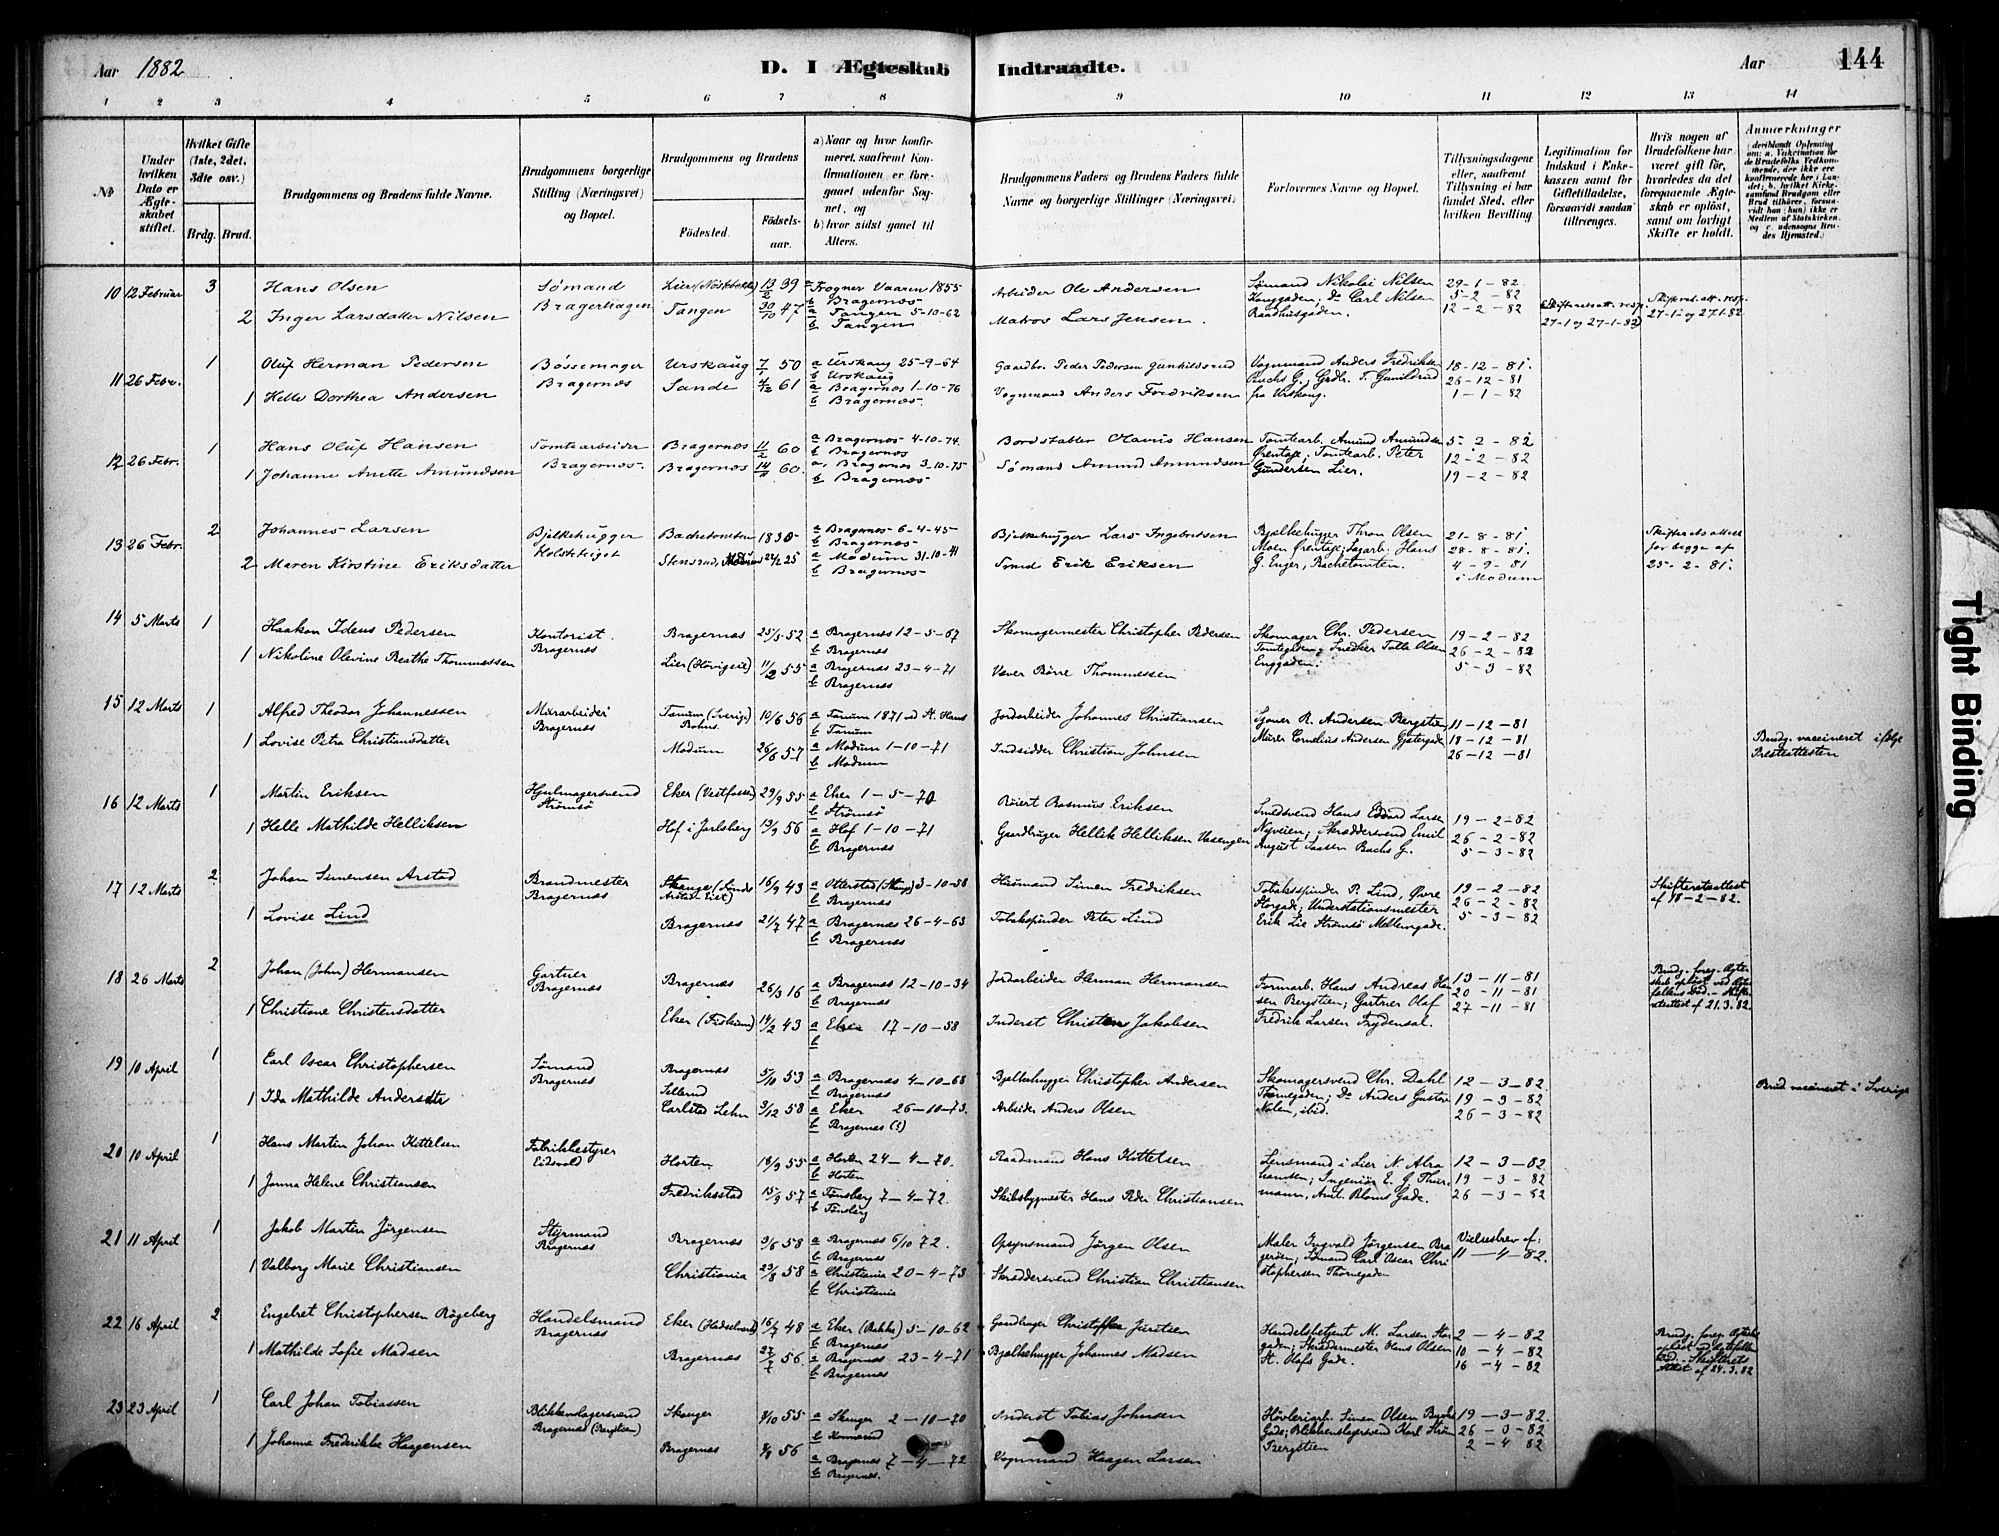 Aar 1882
D. I Ægteskab Indtraadte.
Aar
144
1 2 3 4 5 6 7 8 9 10 11 12 13 14
No
Under hvilken Dato er Ægteskabet stiftet.
Hvilket Gifte (1ste, 2det, 3die osv.)
Brdg. Brud.
Brudgommens og Brudens fulde Navne.
Brudgommens borgerlige Stilling (Næringsvei) og Bopæl.
Brudgommens og Brudens
Födested.
Födselsaar.
a) Naar og hvor konfirmeret, saafremt Konfirmationen er foregaaet udenfor Sognet, og
b) hvor sidst gaaet til Alters.
Brudgommens Faders og Brudens Faders fulde Navne og borgerlige Stillinger (Næringsvei)
Forlovernes Navne og Bopæl.
Tillysningsdagene eller, saafremt Tillysning ei har fundet Sted, efter hvilken Bevilling.
Legitimation for Indskud i Enkekassen samt for Giftetilladelse, forsaavidt saadan tiltrænges.
Hvis nogen af Brudefolkene har været gift för, hvorledes da det foregaaende Ægteskab er oplöst, samt om lovligt Skifte er holdt.
Anmærkninger
10 12 Februar 3 Hans Olsen Sømand Lier 13/2 39 a Frogner Vaaren 1855 Arbeider Ole Andersen Sømand Nikolai Nilsen 29-1-82
Bragerhagen b Bragernæs Konggaden; Do Carl Nilsen 5-2-82
2 Inger Larsdatter Nilsen Tangen 30/10 47 a Tangen 5-10-62 Matros Lars Jensen. Raadhusgaden. 12-2-82 27-1 og 27-1-82 27-1 og 27-1-82
b Tangen
11 26 Febr. 1 Oluf Herman Pedersen Bøssemager Urskaug 7/1 50 a Urskaug 25-9-64 Gaardbr. Peder Pedersen Gunhildsrud Vognmand Anders Fredriksen 18-12-81
Bragernæs b Urskaug Buchs G.; Grdbr. T. Gunildrud 26-12-81
1 Helle Dorthea Andersen Sande 4/2 61 a Bragernæs 1-10-76 Vognmand Anders Fredriksen fra Urskoug. 1-1-82
b Bragernæs
12 26 Febr. 1 Hans Oluf Hansen Tomtearbeider Bragernæs 11/2 60 a Bragernæs 4-10-74. Bordstabler Olavus Hansen Tomtearb. Amund Amundsen 5-2-82
Bragernæs b Bragernæs Ørentaje; Tomtearb. Peter 12-2-82
1 Johanne Anette Amundsen Bragernæs 60 a Bragernæs 3-10-75 Sømand Amund Amundsen Gundersen Lier. 19-2-82
b Bragernæs
13 26 Febr. 2 Johannes Larsen Bjelkehugger Bachetomten 1830 a Bragernæs 6-4-45 Bjelkehugger Lars Ingebretsen Bjelkehugger Thron Olsen 21-8-81 Skifteretsattest
b Bragernæs Moen Ørentaje; Sagarb. Hans 28-8-81. for begge af
2 Maren Kirstine Eriksdatter Stensrud, Modum 24/12 25 a Modum 31-10-41 Smed Erik Eriksen G. Enger, Bachetomten. 4-9-81 25-2-81.
b Bragernæs i Modum
14 5 Marts 1 Haakon Ideus Pedersen Kontorist. Bragernæs 25/5 52 a Bragernæs 12-5-67 Skomagermester Christopher Pedersen Skomager Chr. Pedersen 19-2-82
Bragernæs b Bragernæs Tomtegaden; Snedker Tolle Olsen 26-2-82
1 Nikoline Olevine Beathe Thommessen Lier 11/2 55 a Bragernæs 23-4-71 Væver Börre Thommessen Enggaden. 5-3-82
b Bragernæs
15 12 Marts 1 Alfred Theodor Johannessen Murarbeider Tanum (Sverige) 10/6 56 a Tanum 1871 ved St. Hans Jordarbeider Johannes Christiansen R. Andersen Bergstien 11-12-81
Bragernæs Bohus. b Tanum Murer Cornelius Andersen Gjetergade 18-12-81
1 Lovise Petra Christiansdatter Modum 26/6 57 a Modum 1-10-71 Indsidder Christian Johnsen 26-12-81 Brudg. vaccineret ifølge
b Modum Presteattesten
16 12 Marts 1 Martin Eriksen Hjulmagersvend Eker (Vestfossen) 29/9 55 a Eker 1-5-70 Röiert Rasmus Eriksen Smedsvend Hans Edvard Larsen 19-2-82
Strömsö b Strömsö Nyveien; Skræddersvend Emil 26-2-82
1 Helle Mathilde Helliksen Hof i Jarlsberg 19/9 56 a Hof 1-10-71 Gaardbruger Hellik Helliksen Vasengen August Larsen Bachs G. 5-3-82
b Bragernæs
17 12 Marts 2 Johan Simensen Arstad Brandmester Stange 16/9 43 a Ottestad (Stange) 3-10-58 Husmand Simen Fredriksen Tobaksspinder P. Lind, Øvre 19-2-82 Skifteretsattest
Bragernæs b Bragernæs Storgade; Understationsmester 26-2-82 af 18-2-82.
1 Lovise Lind Bragernæs 21/7 47 a Bragernæs 26-4-63 Tobakspinder Peter Lind Erik Lie Strömsö Mellemgade. 5-3-82
b Bragernæs
18 26 Marts 2 Johan (John) Hermansen Gartner Bragernæs 26/3 16 a Bragernæs 12-10-34 Jordarbeider Herman Hermansen Formarb. Hans Andreas Han 13-11-81 Brudg. foreg. Ægte
Bragernæs b Bragernæs sen Bergstien; Gartner Olaf 20-11-81 skab opløst ved Ægte
1 Christiane Christensdatter Eker (Fiskum) 14/2 43 a Eker 17-10-58 Inderst Christens Jakobsen Fredrik Larsen Frydendal. 27-11-81 fællens Død. – Skifte
b retsattest af 21.3.82.
19 10 April 1 Carl Oscar Christophersen Sømand Bragernæs 5/10 53 a Bragernæs 4-10-68 Bjelkehugger Christopher Andersen Skomagersvend Chr. Dahl 12-3-82
Bragernæs b Bragernæs Thornegaden; Do Anders Gustav 19-3-82 Brud vaccineret i Sverige
1 Ida Mathilde Andersdtr Carlstad Lehn 3/12 58 a Eker 26-10-73. Arbeider Anders Olsen Nolen, ibid. 26-3-82
b Bragernæs (?)
20 10 April 1 Hans Martin Johan Kittelsen Fabrikbestyrer Horten 18/9 55 a Horten 24-4-70. Raadmand Hans Kittelsen Lensmand i Lier N. Abra 12-3-82
Eidsvold b Horten hamsen; Ingeniør E. G. Thur 19-3-82
1 Janna Helene Christiansen Fredriksstad 15/9 57 a Tønsberg 7-4-72. Skibsbygmester Hans Peder Christiansen mann, Amt. Bloms Gade. 26-3-82
b Tønsberg
21 11 April 1 Jakob Martin Jörgensen Styrmand Bragernæs 9/6 58 a Bragernæs 6/10 72. Opsynsmand Jörgen Olsen Maler Ingvald Jörgensen Bra Vielsesbrev af:
Bragernæs b Bragernæs gerøen; Sømand Carl Oscar Chri 11-4-82.
1 Valborg Marie Christiansen Christiania 29/8 58 a Christiania 20-4-73 Skræddersvend Christian Christiansen stophersen Thornegaden
b Christiania
22 16 April 2 Engebret Christophersen Rögeberg Handelsmand Eker 16/7 48 a Eker (Bakke) 5-10-62 Gaardbruger Christoffer Handelsbetjent M. Larsen Stor 2-4-82 Brudg. foreg. Ægteskab
Bragernæs b Bragernæs gaden; Skræddermester Hans Olsen 10-4-82 opløst ved Ægtefællens
1 Mathilde Sofie Madsen Bragernæs 27/7 56 a Bragernæs 23-4-71 Bjelkehugger Johannes Madsen St. Olafs Gade. 16-4-82 Død. – Skifterets
b Bragernæs Attest af 24.3.82
23 23 April 1 Carl Johan Tobiassen Blikkenslagersvend Skoger 55 a Skoger 2-10-70 Inderst Tobias Johnsen Høvleriarb. Simen Olsen Buchs 19-3-82.
Bragernæs (Bergstien) b Gade; Blikkenslagersvend Karl Ström 26-3-82
1 Johanne Frederikke Haagensen Bragernæs 56 a Bragernæs 7-4-72 Vognmand Haagen Larsen Bergstien 2-4-82
b Bragernæs.
Tight Binding